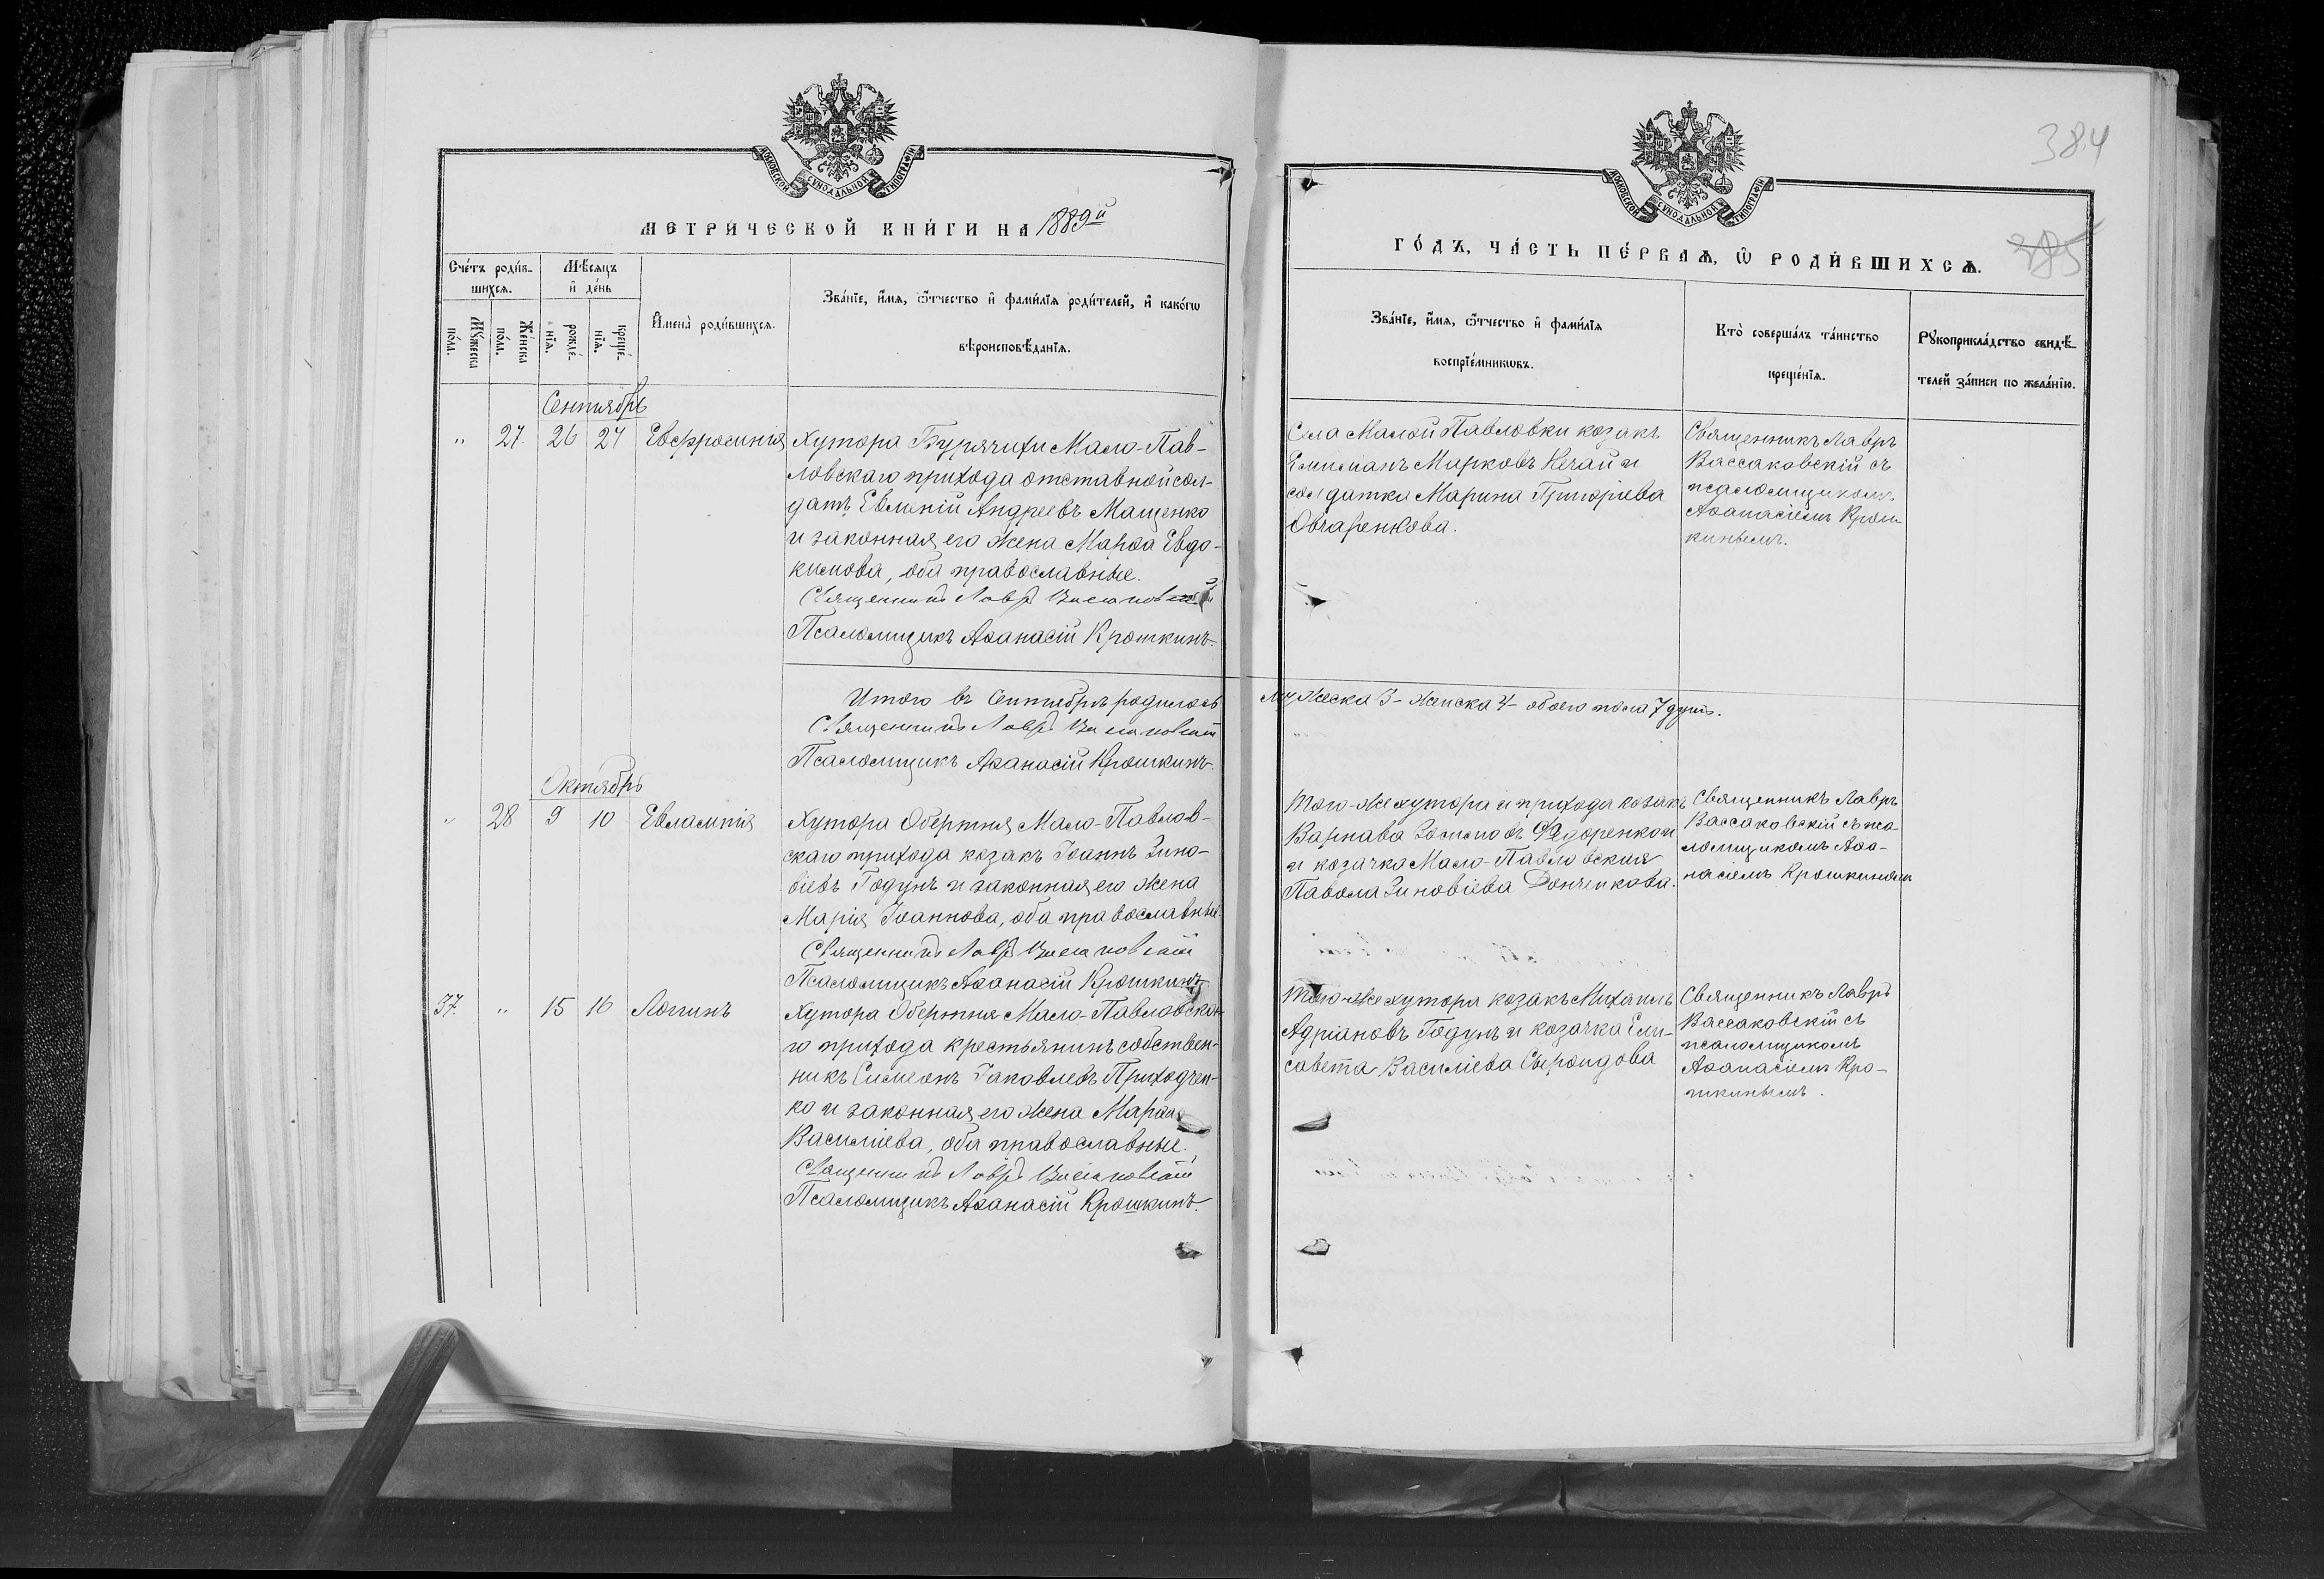 МОСКОВСКОЙ СѴНОДАЛЬНОЙ ТИПОГРАФІИ
МЕТРИ́ЧЕСКОЙ КНИ́ГИ НА 1889й
Сче́тъ роди́в-
шихсѧ.
Мѣ́сѧцъ
и҆ де́нь
Мꙋ́жеска
по́ла.
Же́нска
по́ла.
рожде́-
нїѧ.
креще́-
нїѧ.
И҆мена̀ роди́вшихсѧ.
Зва́нїе, и҆́мѧ, ѻ҆́тчество и҆ фами́лїѧ роди́телей, и҆ како́гѡ
вѣроисповѣ́данїѧ.
Сентябрь
" 27. 26 27 Евфросинія
Хутора Бурячихи Мало-Пав-
ловскаго прихода отставной сол-
датъ Евменій Андреевъ Мащенко
и законная его жена Марѳа Евдо-
кимова, оба православные.
Священникъ Лавръ Вассаковскій
Псаломщикъ Аѳанасій Крошкинъ.
Итого въ Сентябрѣ родилось
Священникъ Лавръ Вассаковскій
Псаломщикъ Аѳанасій Крошкинъ.
Октябрь
" 28 9 10 Евлампія
Хутора Обертня Мало-Павлов-
скаго прихода козакъ Іоаннъ Зино-
віевъ Годунъ и законная его жена
Марія Іоаннова, оба православные.
Священникъ Лавръ Вассаковскій
Псаломщикъ Аѳанасій Крошкинъ.
37. " 15 16 Логинъ
Хутора Обертня Мало-Павловска-
го прихода крестьянинъ собствен-
никъ Симеонъ Іаковлевъ Приходчен-
ко и законная его жена Марѳа
Василіева, оба православные.
Священникъ Лавръ Вассаковскій
Псаломщикъ Аѳанасій Крошкинъ.
384
385
МОСКОВСКОЙ СѴНОДАЛЬНОЙ ТИПОГРАФІИ
ГО́ДЪ, ЧА́СТЬ ПЕ́РВАѦ, Ѡ҆ РОДИ́ВШИХСѦ.
Зва́нїе, и҆́мѧ, ѻ҆́тчество и҆ фами́лїѧ
воспрїе́мникѡвъ.
Кто̀ соверша́лъ та́инство
креще́нїѧ.
Рꙋкоприкла́дство свидѣ́-
телей за́писи по жела́нїю.
Села Малой Павловки козакъ
Емиліанъ Марковъ Нечай и
солдатка Марина Григоріева
Овчаренкова.
Священникъ Лавръ
Вассаковскій съ
псаломщикомъ
Аѳанасіемъ Крош-
кинымъ.
мужеска 3 - женска 4 - обоего пола 7 душъ.
Того-же хутора и прихода козакъ
Варнава Ѳедоренко и
и козачка Мало-Павловская
Павола Зиновіева Донченкова.
Священникъ Лавръ
Вассаковскій съ пса-
ломщикомъ Аѳа-
насіемъ Крошкинымъ
Того-же хутора козакъ Михаилъ
Адріановъ Годунъ и козачка Ели-
савета Василіева Сыроидова
Священникъ Лавръ
Вассаковскій съ
псаломщикомъ
Аѳанасіемъ Кро-
шкинымъ.